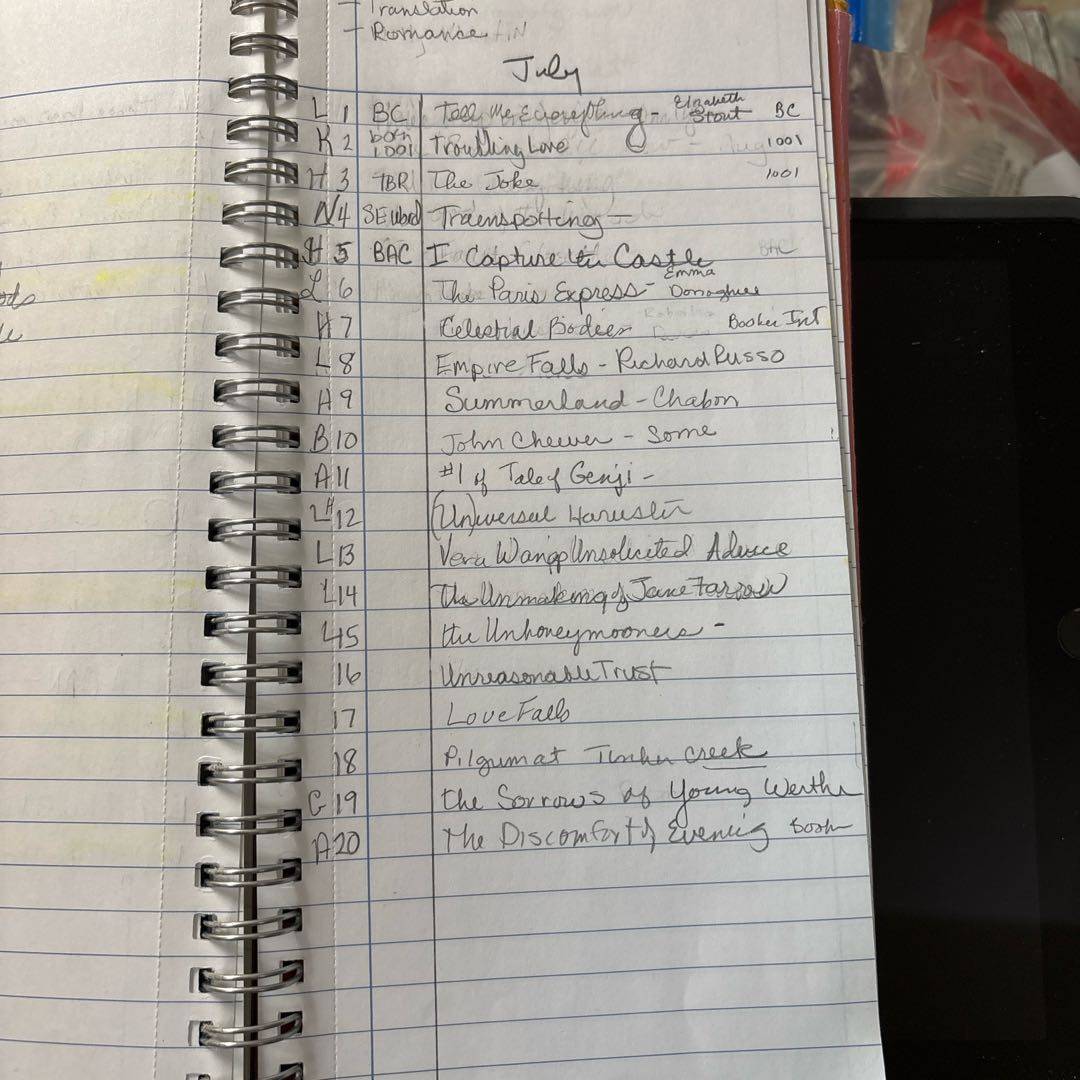 - Translation
- Romance
July
L 1 BC Tell Me Everything - Elizabeth Strout BC
K 2 born 1001 Troubling Love 1001
H 3 TBR The Joke 1001
N 4 SE Word Trainspotting -
H 5 BAC I Capture the Castle BAC
L 6 The Paris Express - Emma Donoghue
H 7 Celestial Bodies Booker Int
L 8 Empire Falls - Richard Russo
A 9 Summerland - Chabon
B 10 John Cheever - Some
A 11 #1 of Tale of Genji -
LH 12 (Un)iversal Harvester
L 13 Vera Wong Unsolicited Advice
L 14 The Unmaking of June Farrow
L 15 the Unhoneymooners -
16 Unreasonable Trust
17 Love Falls
18 Pilgrim at Tinker Creek
G 19 the Sorrows of Young Werther
A 20 The Discomfort of Evening Book